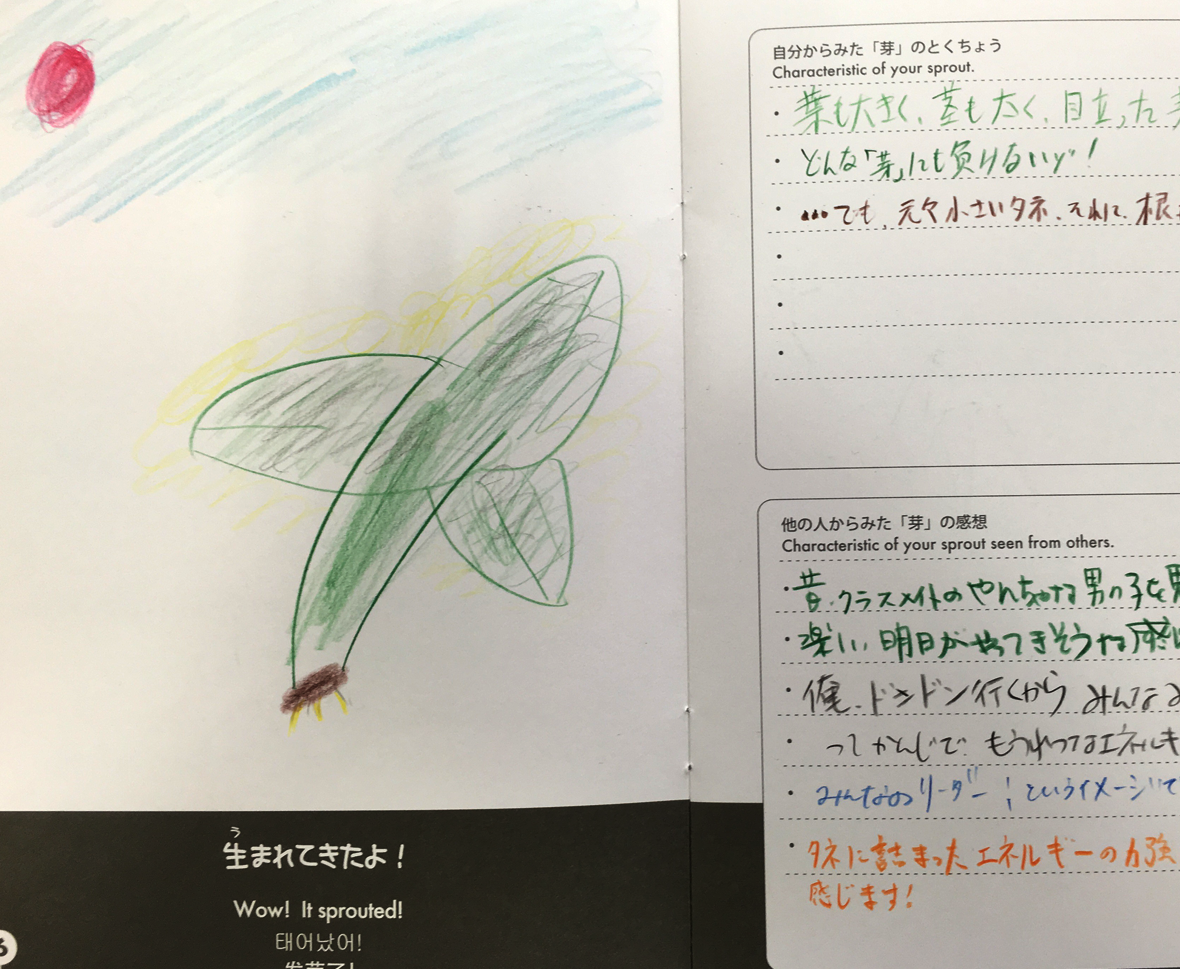 う
生まれてきたよ！
Wow! It sprouted!
태어났어!
6
自分からみた「芽」のとくちょう
Characteristic of your sprout.
・葉も大きく、茎も太く、目立った
・どんな「芽」にも負けないゾ！
・…でも、元々小さいタネ、それに、根
・
・
・
他の人からみた「芽」の感想
Characteristic of your sprout seen from others.
・昔、クラスメイトのやんちゃな男の子を
・楽しい明日がやってきそうな感じ
・俺、ドンドン行くから みんな
・ってかんじで もうれつなエネルギ
・みんなのリーダー！というイメージ
・タネに詰まったエネルギーの力強
感じます！